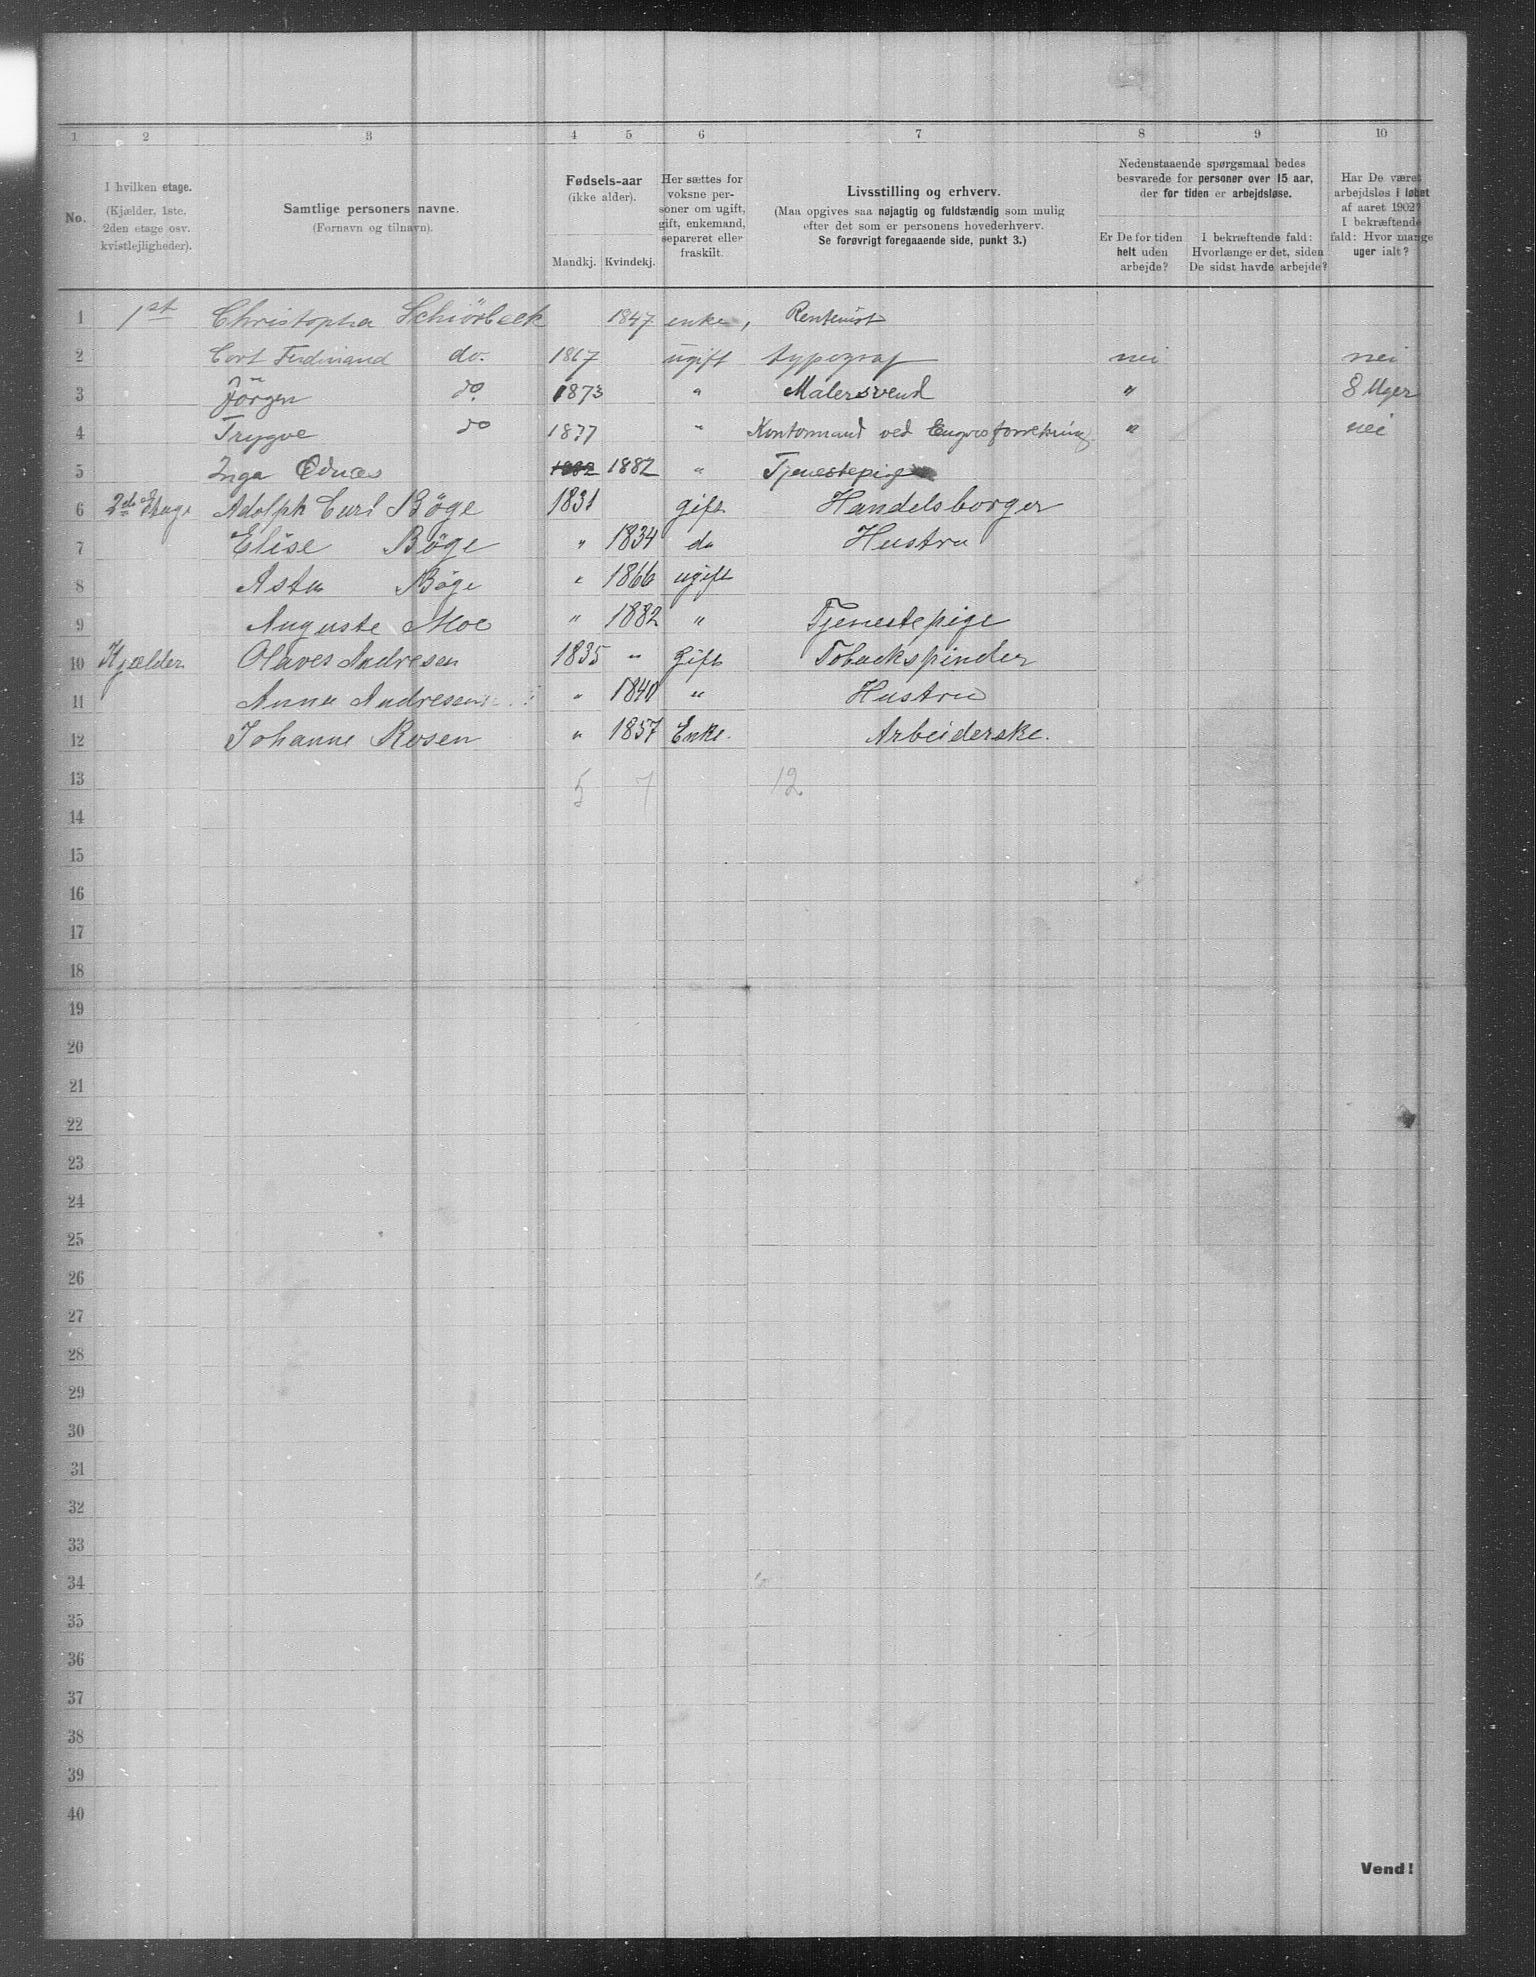 1 2 3 4 5 6 7 8 9 10
No.
I hvilken etage.
(Kjælder, 1ste,
2den etage osv.
kvistlejligheder).
Samtlige personers navne.
(Fornavn og tilnavn).
Fødsels-aar
(ikke alder).
Mandkj. Kvindekj.
Her sættes for
voksne per-
soner om ugift,
gift, enkemand,
separeret eller
fraskilt.
Livsstilling og erhverv.
(Maa opgives saa nøjagtig og fuldstændig som mulig
efter det som er personens hovederhverv.
Se forøvrigt foregaaende side, punkt 3.)
Nedenstaaende spørgsmaal bedes
besvarede for personer over 15 aar,
der for tiden er arbejdsløse.
Er De for tiden
helt uden
arbejde?
I bekræftende fald:
Hvorlænge er det, siden
De sidst havde arbejde?
Har De været
arbejdsløs i løbet
af aaret 1902?
I bekræftende
fald: Hvor mange
uger ialt?
1 1st Christopha Schiörbeck 1847 enke, Rentenist
2 Cort Ferdinand do. 1867 ugift typograf nei nei
3 Jörgen do. 1873 " Malersvend " 8 Uger
4 Trygve do 1877 " Kontormand ved Engrosforretning " nei
5 Inga 1882 1882 " Tjenestepige
6 2den Etage Adolph Curl Bøge 1831 gift Handelsborger
7 Elise Bøge " 1834 do Hustru
8 Asta Bøge " 1866 ugift
9 Auguste Moe " 1882 " Tjenestepige
10 Kjælder Olaves Andresen 1835 " Gift Tobackspinder
11 Anna Andresen " 1840 " Hustru
12 Johanne Rosen " 1857 Enke. Arbeiderske.
13 5 7 12
14
15
16
17
18
19
20
21
22
23
24
25
26
27
28
29
30
31
32
33
34
35
36
37
38
39
40
Vend!